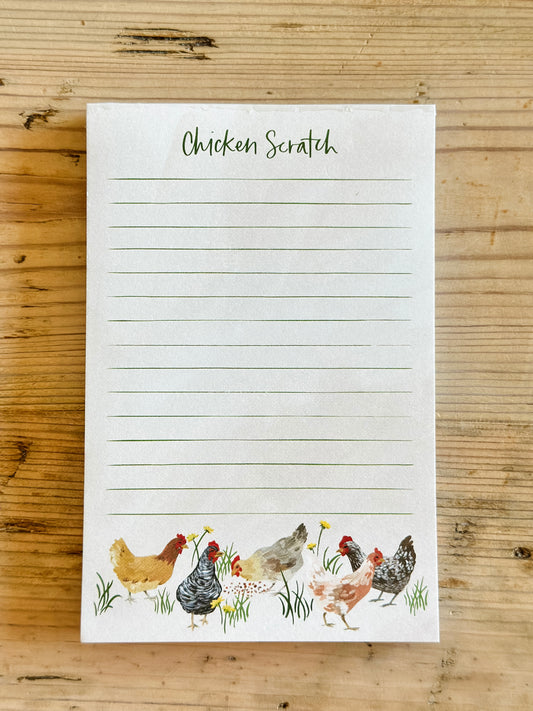 Chicken Scratch